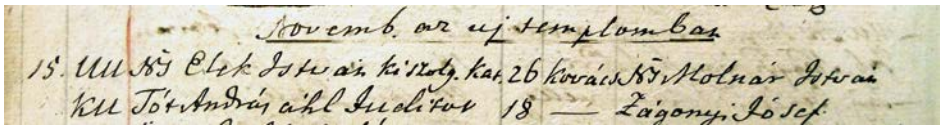 Novemb. az uj templomban
15. UU Ns Elek Istvan kiszolg. Kat. 26 Kovács Ns Molnár Istvan
KU Tót András áhl Juditot 18 — Zágonyi Jósef